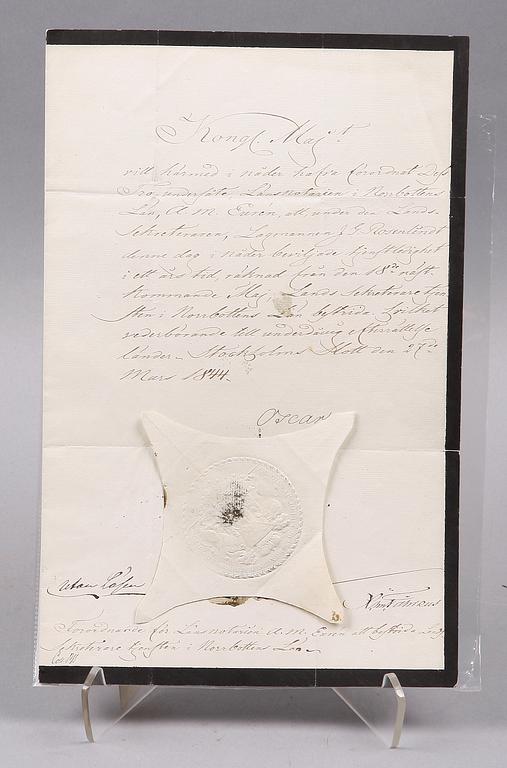 Kongl. Maj:t
vill härmed i nåder hafva förordnat Dess
Tro undersåte, Länsnotarien i Norrbottens
Län, A. M. Eurén, att, under den Lands-
Sekreteraren, Lagmannen J. G. Rosenlindt
denne dag i nåder beviljade tjenstledighet
i ett års tid, räknad från den 18:de näst-
kommande Maj, Lands Sekreterare tjen-
sten i Norrbottens Län bestrida. hvilket
vederbörande till underdånig efterrättelse
länder. Stockholms Slott den 27:de
Mars 1844.
Oscar
Utan Lösen
Förordnande för Länsnotarien A. M. Eurén att bestrida Lands
Sekreterare tjensten i Norrbottens Län.